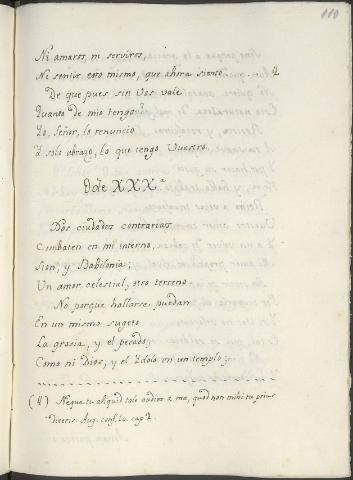 110
Ni amaros, ni serviros,
Ni sentir esto mismo, que ahora siento. 4
De que pues sin Vos vale
Quanto de mio tengo?
Yo, Señor, lo renuncio
Y solo abrazo, lo que tengo Vuestro.
Ode XXX.a
Dos ciudades contrarias
Combaten en mi interno,
Sion, y Babilonia;
Un amor celestial, otro terreno.
No porque hallarse puedan
En un mismo sugeto
La gracia, y el pecado;
Como ni Dios, y el Ydolo en un templo;
(4) Neque tu aliquid tale audires a me, quod non mihi tu prius
dixeris. Aug. conf. l. 10. cap. 2.